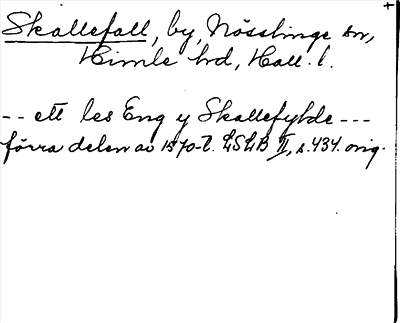 Skallefall, by, Nösslinge sn,
Himle hd, Hall. l.
-- ett les Eng y Skallefylde ---
förra delen av 1570-t. LSLB II, s. 434. orig.